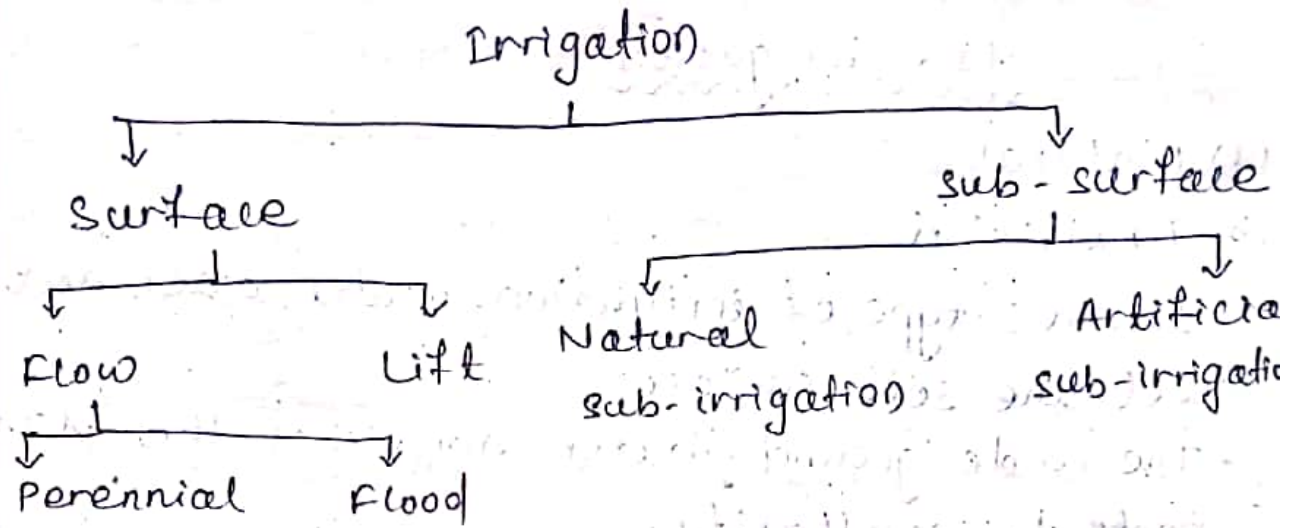 Irrigation
Surface
sub-surface
Flow
Lift
Natural
sub-irrigation
Artificia
sub-irrigatio
Perennial
Flood